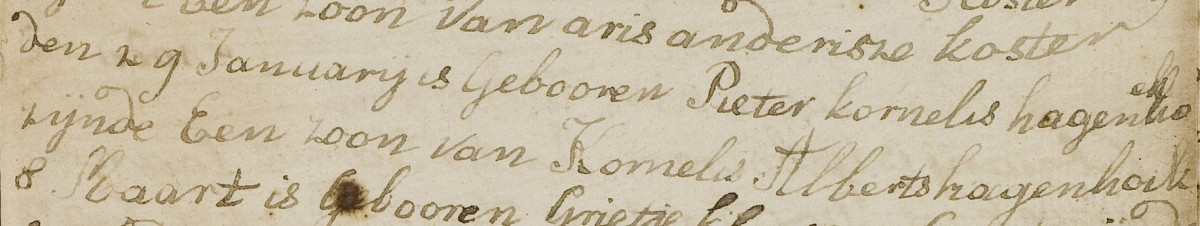 Een zoon van aris anderisze koster
den 29 Januarij is Gebooren Pieter kornelis hagenho
zijnde Een zoon van Kornelis Alberts hagenhoek
8 Maart is Gebooren Grietje